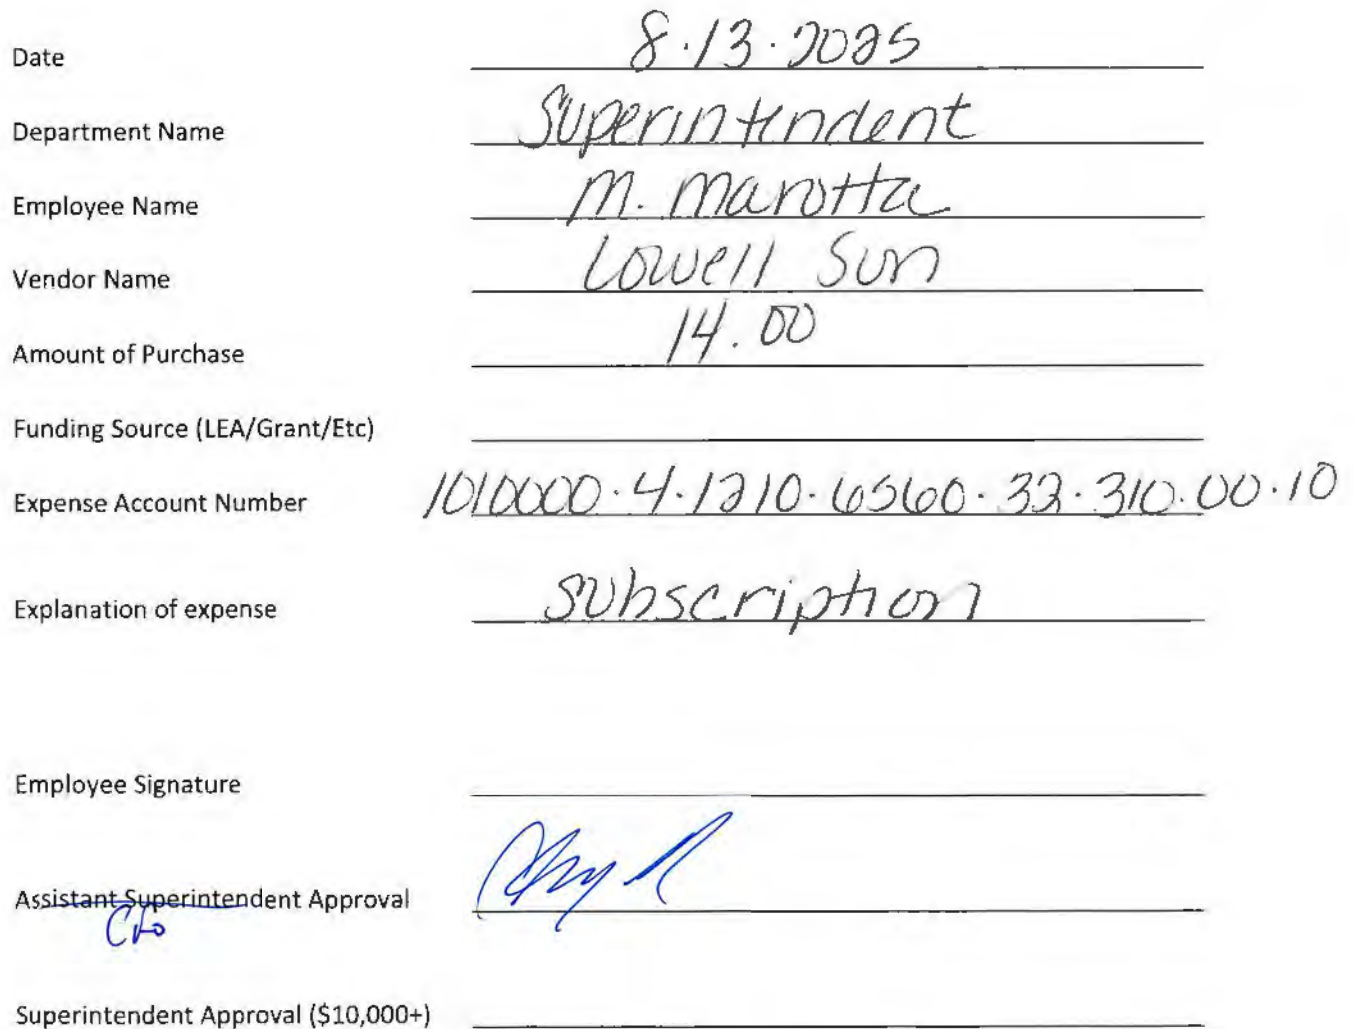 Date 8.13.2025
Department Name Superintendent
Employee Name M. Marotta
Vendor Name Lowell Sun
Amount of Purchase 14.00
Funding Source (LEA/Grant/Etc)
Expense Account Number 1010000.4.1210.6560.32.310.00.10
Explanation of expense subscription
Employee Signature
Assistant Superintendent Approval
CFO
Superintendent Approval ($10,000+)